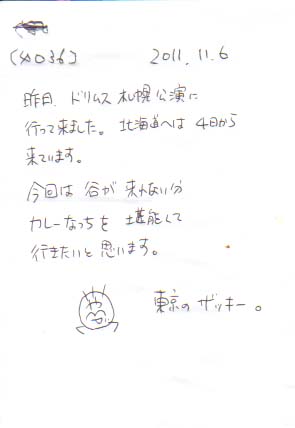 (40036) 2011.11.6
昨日、ドリムス 札幌公演に
行って来ました。北海道へは 4日から
来ています。
今回は 谷が 来れない分
カレーなっちを 堪能して
行きたいと思います。
東京の ザッキー。